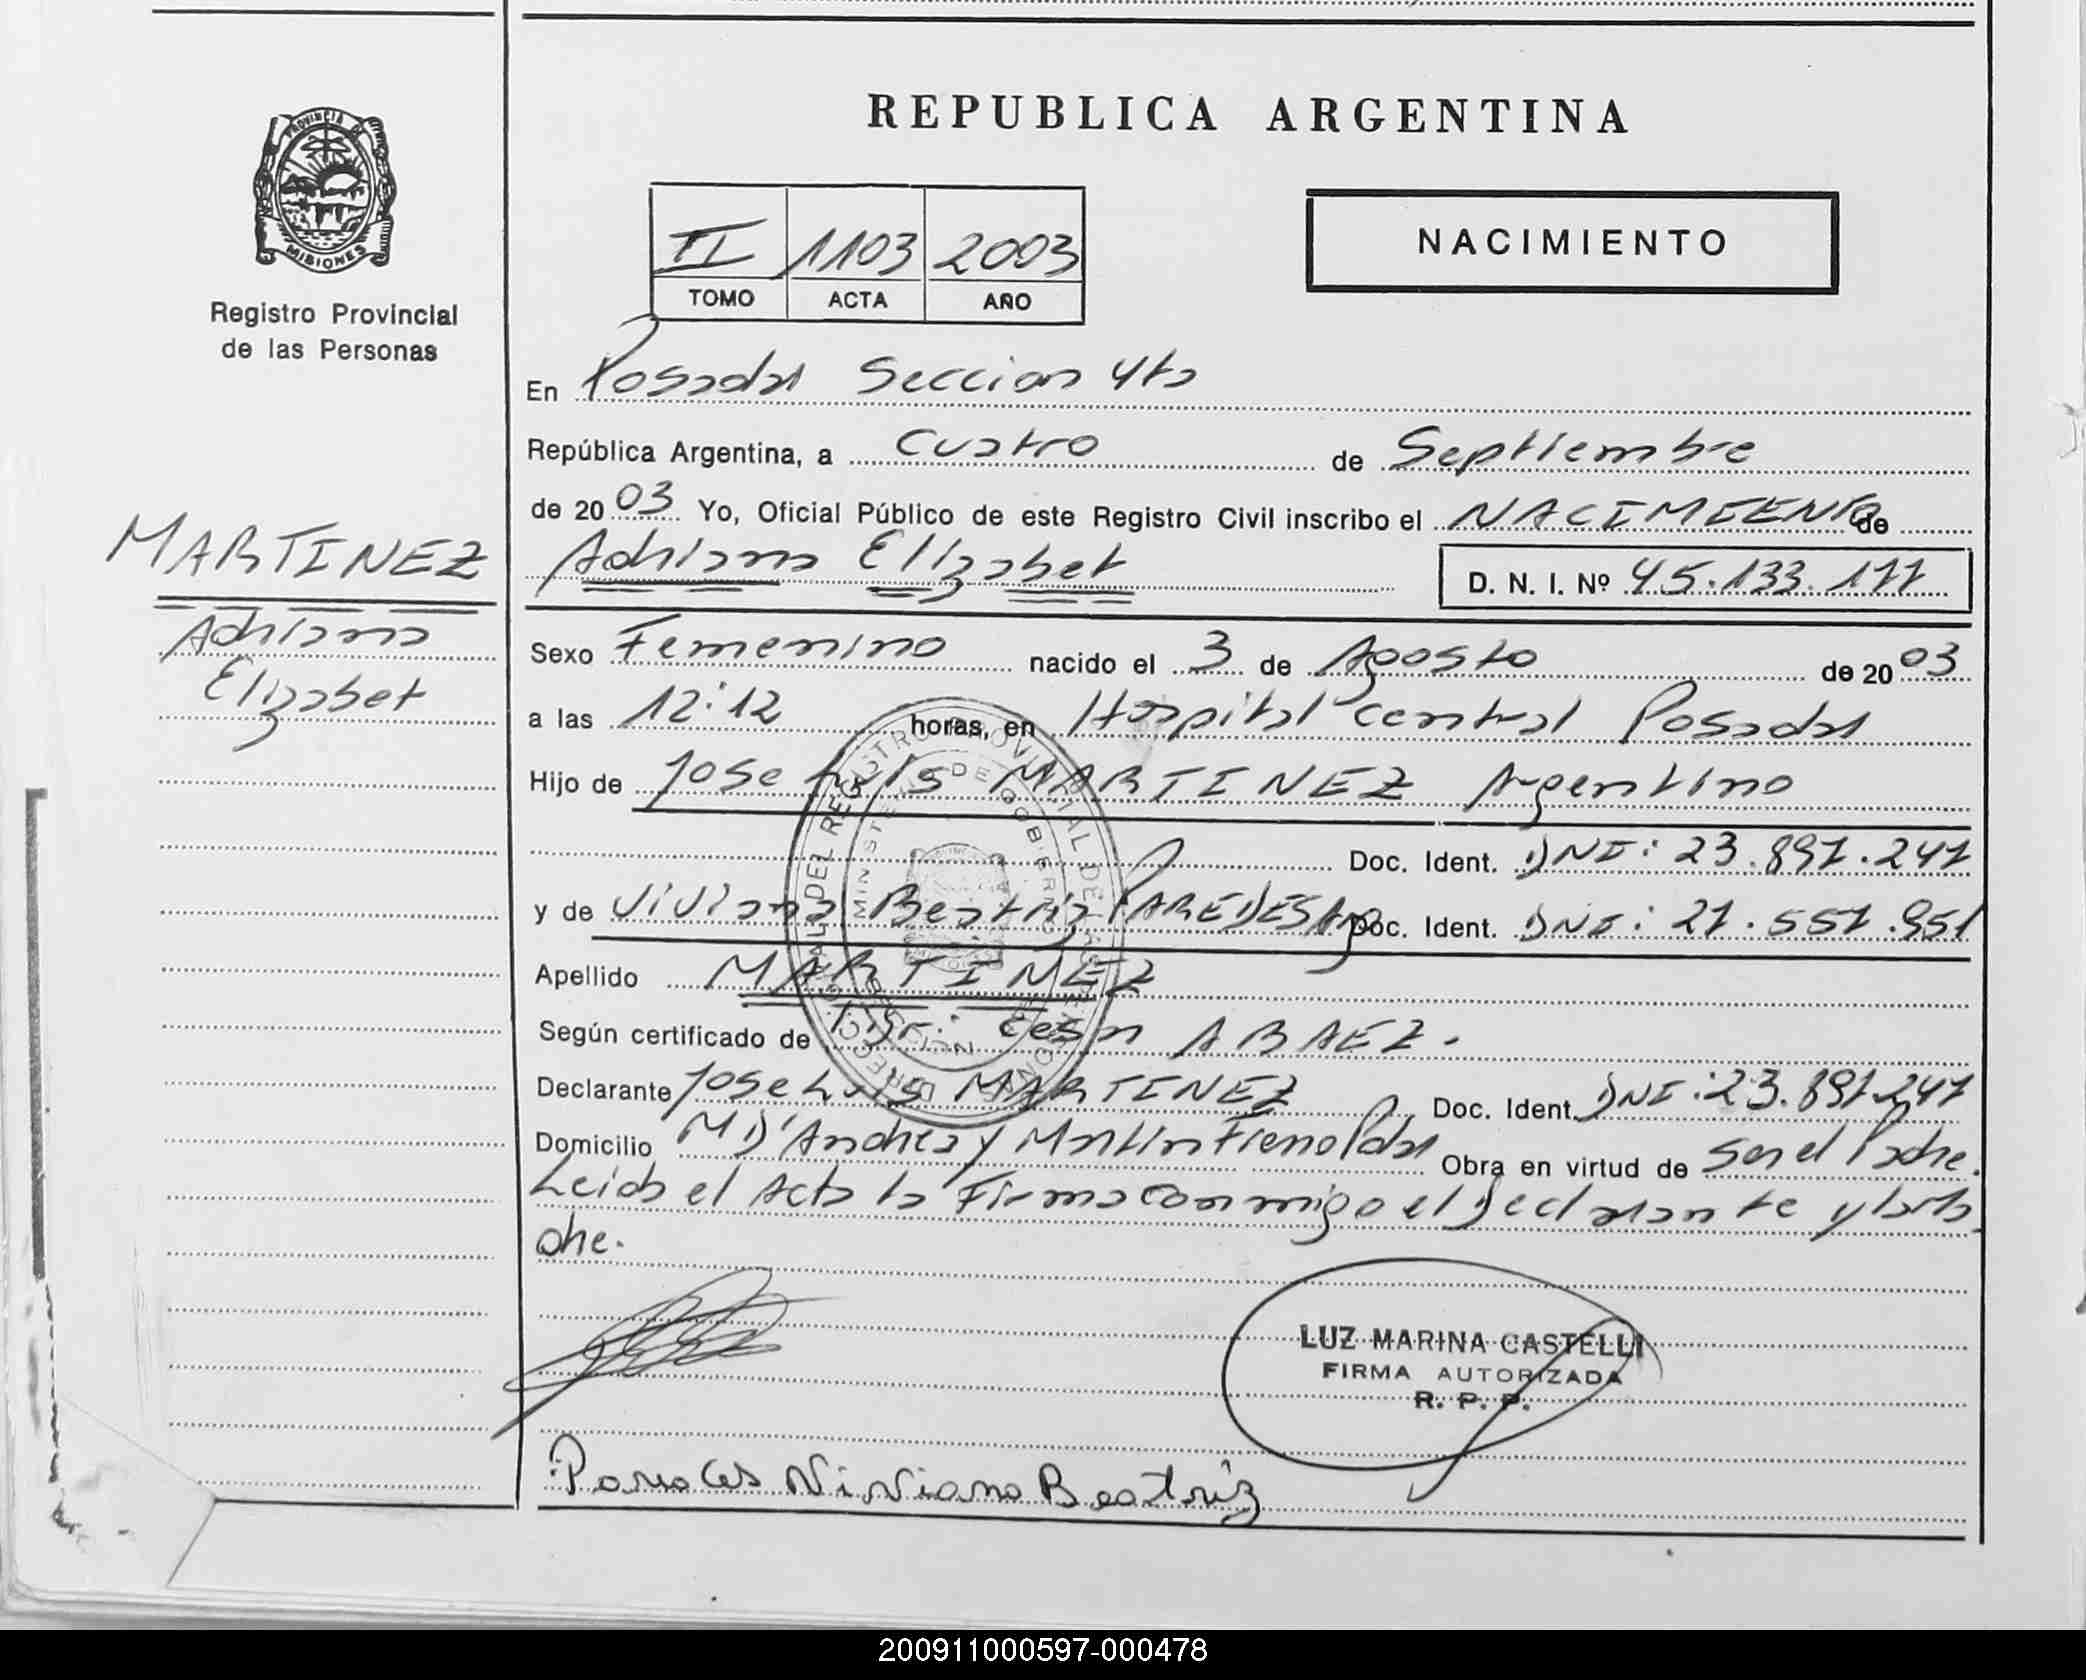 REPUBLICA ARGENTINA
PROVINCIA DE
MISIONES
Registro Provincial
de las Personas
II 1103 2003
TOMO ACTA AÑO
NACIMIENTO
En Posadas Seccion 4ta
República Argentina, a Cuatro de Septiembre
de 2003 Yo, Oficial Público de este Registro Civil inscribo el NACIMIENTO de
Adriana Elizabet D. N. I. Nº 45.133.177
MARTINEZ
Adriana
Elizabet
Sexo Femenino nacido el 3 de Agosto de 2003
a las 12:12 horas, en Hospital central Posadas
Hijo de Jose Luis MARTINEZ Argentino
Doc. Ident. DNI: 23.897.247
y de Viviana Beatriz PAREDES Arg Doc. Ident. DNI: 21.557.951
Apellido MARTINEZ
Según certificado de Tgr. Cesar ABAEZ.
Declarante Jose Luis MARTINEZ Doc. Ident. DNI: 23.897.247
Domicilio M D'Andrea y Martin Fierro Pdas Obra en virtud de Ser el Padre.
Leida el Acta la Firma conmigo el Declarante y la Ma
dre.
LUZ MARINA CASTELLI
FIRMA AUTORIZADA
R. P. P.
Paredes Viviana Beatriz
200911000597-000478